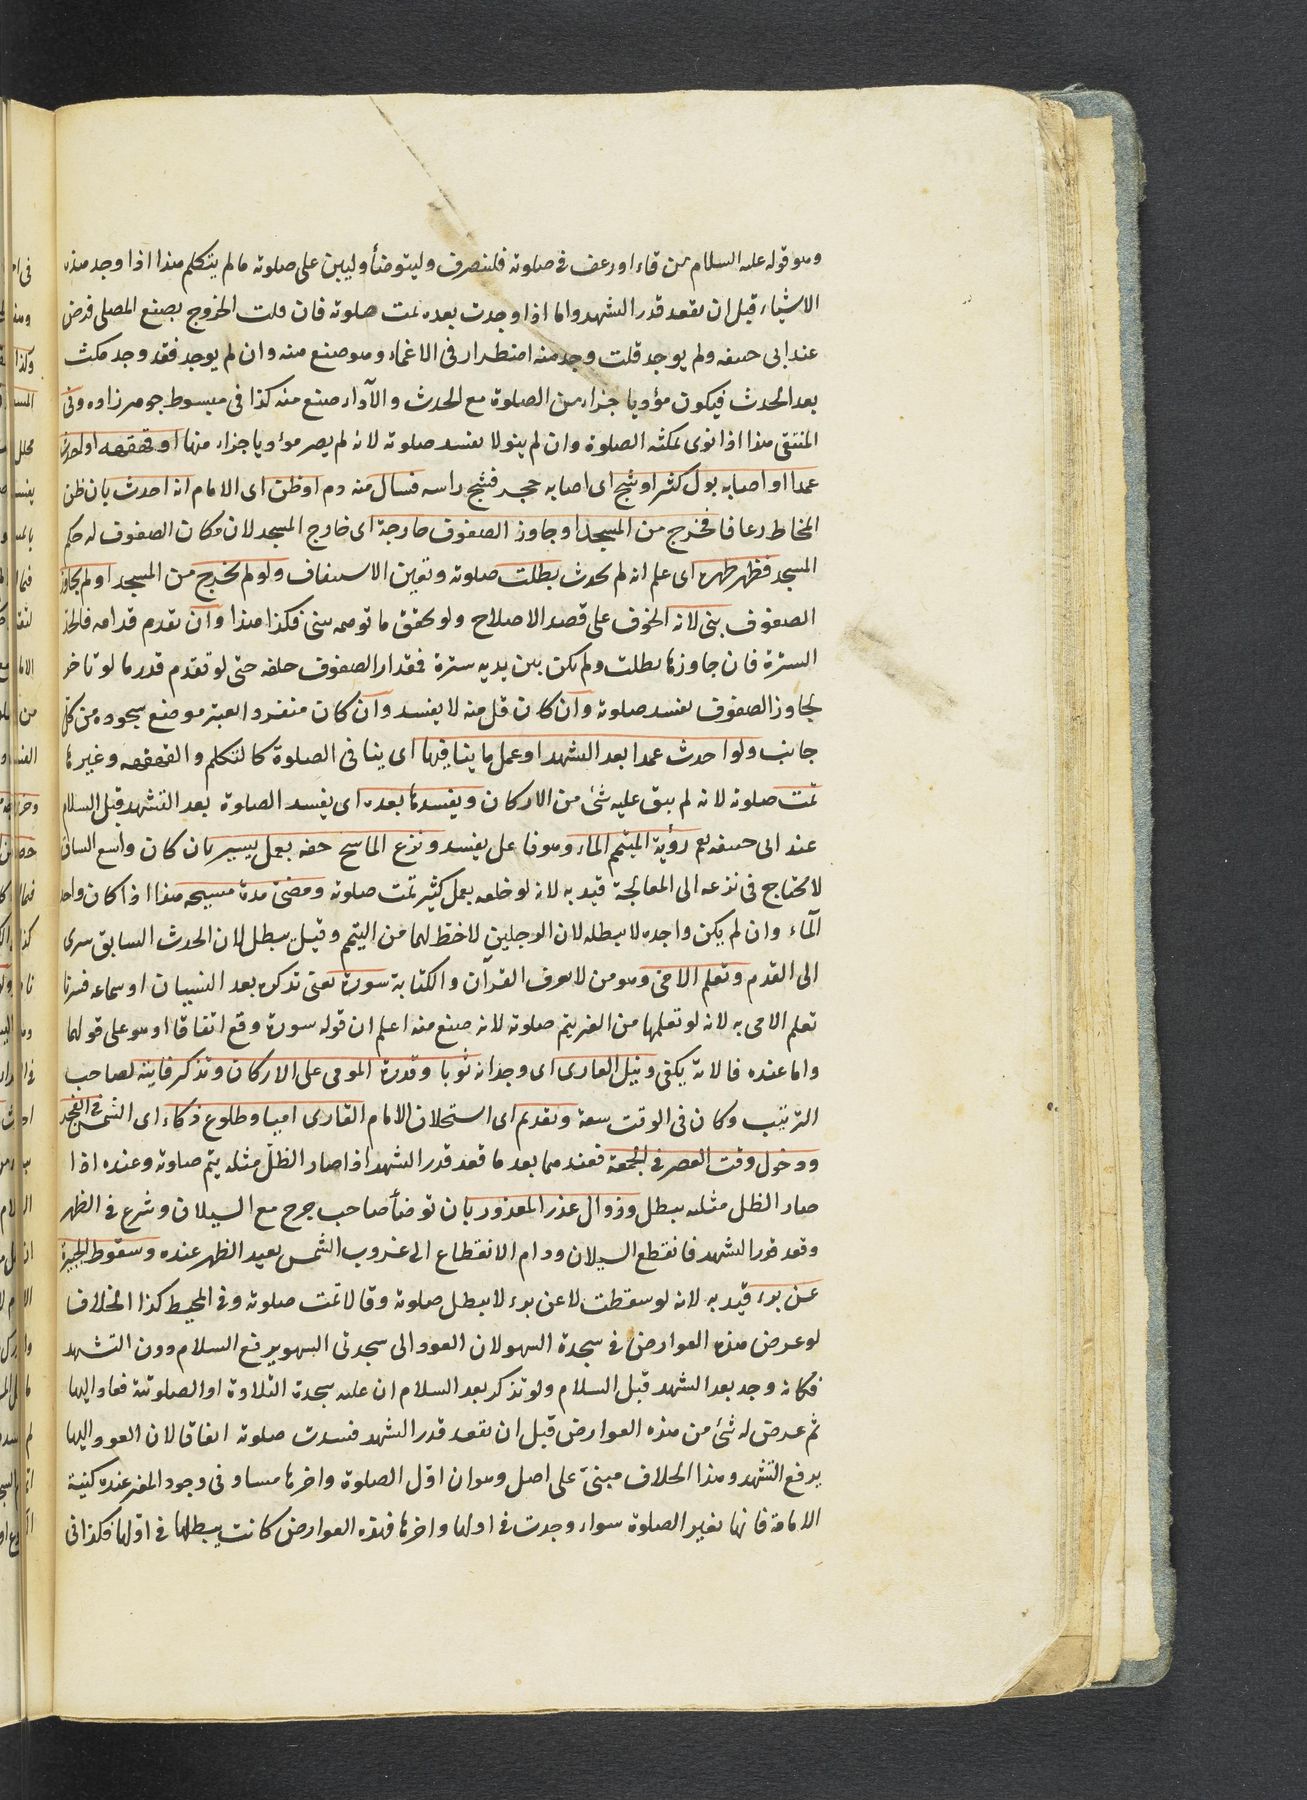 وهو قوله عليه السلام من قاء او رعف فى صلوته فلينصرف وليتوضأ وليبن على صلوته ما لم يتكلم هذا اذا وجد هذه
الاشياء قبل ان يقعد قدر التشهد واما اذا وجدت بعده تمت صلوته فان قلت الخروج بصنع المصلى فرض
عند ابى حنيفه ولم يوجد قلت وجد منه اضطرار فى الاغماء وهو صنع منه وان لم يوجد فقد وجد مكث
بعد الحدث فيكون مؤديا جزاء من الصلوة مع الحدث والآداء صنع منه كذا فى مبسوط خوهرزاده وفى
المنتقى هذا اذا نوى بمكثه الصلوة وان لم ينو لا يفسد صلوته لانه لم يصر مؤديا جزاء منها او قهقهه او احدث
عمدا او اصابه بول كثير او شج اى اصابه حجر فشج راسه فسال منه دم او ظن اى الامام انه احدث بان ظن
المخاط رعافا فخرج من المسجد او جاوز الصفوف خارجة اى خارج المسجد لان مكان الصفوف له حكم
المسجد فظهر طهره اى علم انه لم يحدث بطلت صلوته وتعين الاستيناف ولو لم يخرج من المسجد او لم يجاوز
الصفوف بنى لانه انحرف على قصد الاصلاح ولو تحقق ما توهمه يبنى فكذا هذا وان تقدم قدامه فالحد
السترة فان جاوزها بطلت ولم يكن بين يديه سترة فمقدار الصفوف خلفه حتى لو تقدم قدر ما لو تاخر
لجاوز الصفوف يفسد صلوته وان كان قل منه لا يفسد وان كان منفردا يعتبر موضع سجوده من كل
جانب ولو احدث عمدا بعد التشهد او عمل ما ينافيها اى ينافى الصلوة كالتكلم والقهقهه وغيرها
تمت صلوته لانه لم يبق عليه شئ من الاركان ويفسدها بعده اى يفسد الصلوة بعد التشهد قبل السلام
عند ابى حنيفه رؤية المتيمم الماء وهو فاعل يفسد ونزع الماسح خفه بعمل يسير بان كان واسع الساق
لا يحتاج فى نزعه الى المعالجة قيد به لانه لو خلعه بعمل كثير تمت صلوته ومضى مدة مسحه هذا اذا كان واجد
الماء وان لم يكن واجده لا يبطله لان الرجلين لا حظ لهما من التيمم وقيل يبطل لان الحدث السابق سرى
الى القدم وتعلم الامى وهو من لا يعرف القرآن والكتابة سورة يعنى تذكره بعد النسيان او سماعه فسرنا
تعلم الامى به لانه لو تعلمها من الغير يتم صلوته لانه صنع منه اعلم ان قوله سورة وقع اتفاقا او هو على قولهما
واما عنده فالاية يكفى ونيل العارى اى وجدانه ثوبا وقدرة المومى على الاركان وتذكر فايتة لصاحب
الترتيب وكان فى الوقت سعة وتقديم اى استخلاف الامام القارى اميا وطلوع ذكاء اى الشمس فى الفجر
ودخول وقت العصر فى الجمعة فعندهما بعد ما قعد قدر التشهد اذا صار الظل مثله يتم صلوته وعنده اذا
صار الظل مثليه يبطل وزوال عذر المعذور بان توضأ صاحب جرح مع السيلان وشرع فى الظهر
وقعد قدر التشهد فانقطع السيلان ودام الانقطاع الى غروب الشمس يعيد الظهر عنده وسقوط الجبيرة
عن برء قيد به لانه لو سقطت لا عن برء لا يبطل صلوته وقالا تمت صلوته وفى المحيط كذا الخلاف
لو عرض هذه العوارض فى سجدة السهو لان العود الى سجدتى السهو يرفع السلام دون التشهد
فكانه وجد بعد التشهد قبل السلام ولو تذكر بعد السلام ان عليه سجدة التلاوة او الصلوتية فعاد اليها
ثم عرض له شئ من هذه العوارض قبل ان يقعد قدر التشهد فسدت صلوته اتفاقا لان العود اليها
يرفع التشهد وهذا الخلاف مبنىّ على اصل وهو ان اوّل الصلوة واخرها مساو فى وجود المغير عنده كنية
الاقامة فانها يغير الصلوة سواء وجدت فى اولها واخرها فهذه العوارض كانت يبطلها فى اوّلها فكذا فى